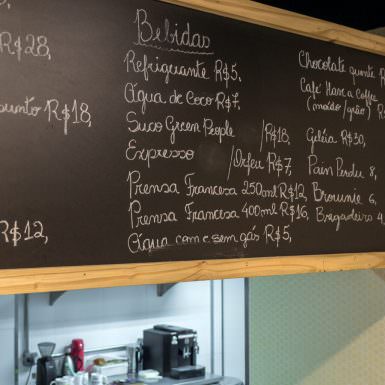 R$28,
unto R$18,
R$12,
Bebidas
Refriguante R$5,
Água de Coco R$7,
Suco Green People /R$18,
Expresso /Orfeu R$7,
Prensa Francesa 250ml R$12,
Prensa Francesa 400ml R$16,
Água com e sem gás R$5,
Chocolate quente R
Café Have a Coffee
(moído/grão) R
Geléia R$30,
Pain Perdu 8,
Brownie 6,
Brigadeiro 4,